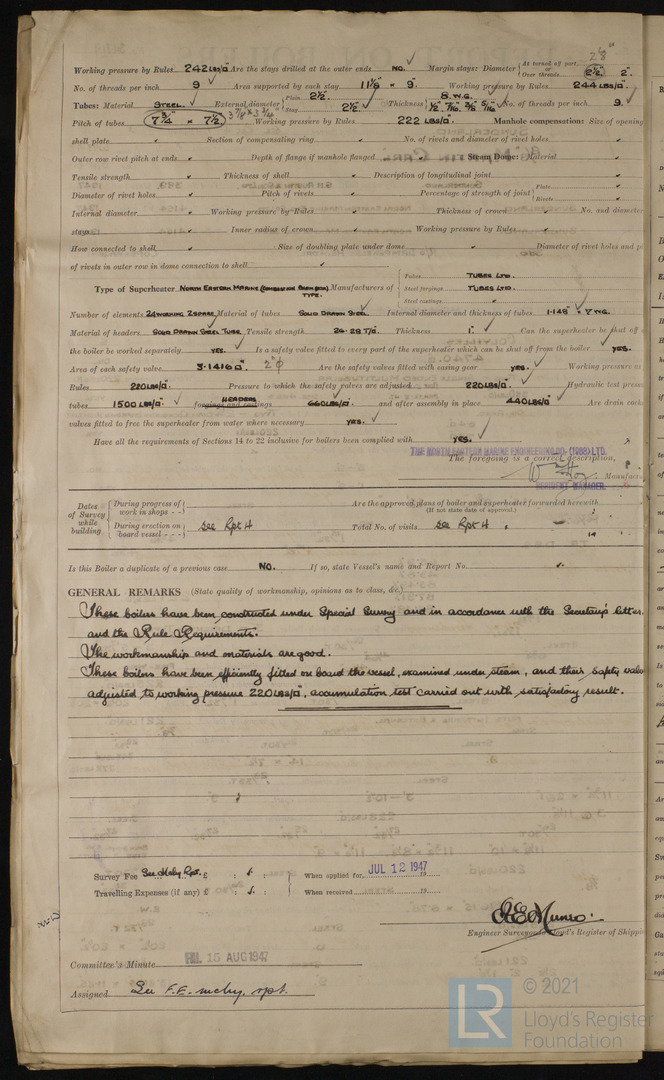 2⅛"
Working pressure by Rules 242 LBS/□" Are the stays drilled at the outer ends NO. Margin stays: Diameter { At turned off part, or Over threads 2½" 2"
No. of threads per inch 9 Area supported by each stay 11⅛" × 9" Working pressure by Rules 244 LBS/□"
Tubes: Material STEEL External diameter { Plain 2½" Stay 2½" Thickness { 8. W.G. ½" 7/16" 3/8" 5/16" No. of threads per inch 9.
Pitch of tubes 7¾" × 7½" 3⅞" × 3¾" Working pressure by Rules 222 LBS/□" Manhole compensation: Size of opening
shell plate Section of compensating ring No. of rivets and diameter of rivet holes
Outer row rivet pitch at ends Depth of flange if manhole flanged Steam Dome: Material
Tensile strength Thickness of shell Description of longitudinal joint
Diameter of rivet holes Pitch of rivets Percentage of strength of joint { Plate Rivets
Internal diameter Working pressure by Rules Thickness of crown No. and diameter
stays Inner radius of crown Working pressure by Rules
How connected to shell Size of doubling plate under dome Diameter of rivet holes and pi
of rivets in outer row in dome connection to shell
Type of Superheater NORTH EASTERN MARINE (COMBUSTION CHAMBER) TYPE. Manufacturers of { Tubes TUBES LTD. Steel forgings TUBES LTD. Steel castings
Number of elements 24 WORKING 2 SPARE Material of tubes SOLID DRAWN STEEL Internal diameter and thickness of tubes 1·148" × 7 WG.
Material of headers SOLID DRAWN STEEL TUBE. Tensile strength 24-28 T/□" Thickness 1" Can the superheater be shut off
the boiler be worked separately YES. Is a safety valve fitted to every part of the superheater which can be shut off from the boiler YES.
Area of each safety valve 3·1416 □" 2"φ Are the safety valves fitted with easing gear YES. Working pressure as
Rules 220 LBS/□" Pressure to which the safety valves are adjusted 220 LBS/□" Hydraulic test press
tubes 1500 LBS/□" forgings and castings HEADERS 660 LBS/□" and after assembly in place 440 LBS/□" Are drain cock
valves fitted to free the superheater from water where necessary YES.
Have all the requirements of Sections 14 to 22 inclusive for boilers been complied with YES.
THE NORTH EASTERN MARINE ENGINEERING CO. (1938) LTD.
The foregoing is a correct description,
Manufactu
RESIDENT MANAGER.
Dates of Survey while building { During progress of work in shops - - } Are the approved plans of boiler and superheater forwarded herewith
(If not state date of approval.)
{ During erection on board vessel - - - } See Rpt 4 Total No. of visits See Rpt 4.
Is this Boiler a duplicate of a previous case NO. If so, state Vessel's name and Report No.
GENERAL REMARKS (State quality of workmanship, opinions as to class, &c.)
These boilers have been constructed under Special Survey and in accordance with the Secretary's letter,
and the Rule Requirements.
The workmanship and materials are good.
These boilers have been efficiently fitted on board the vessel, examined under steam, and their safety valv
adjusted to working pressure 220 LBS/□", accumulation test carried out with satisfactory result.
Survey Fee See Mchy Rpt. £ : : } When applied for, JUL 12 1947 19
Travelling Expenses (if any) £ : : } When received, 19
A.E. Munro.
Engineer Surveyor to Lloyd's Register of Shippin
Committee's Minute FRI. 15 AUG 1947
Assigned See F.E. mchy. rpt.
LR
© 2021
Lloyd's Register
Foundation